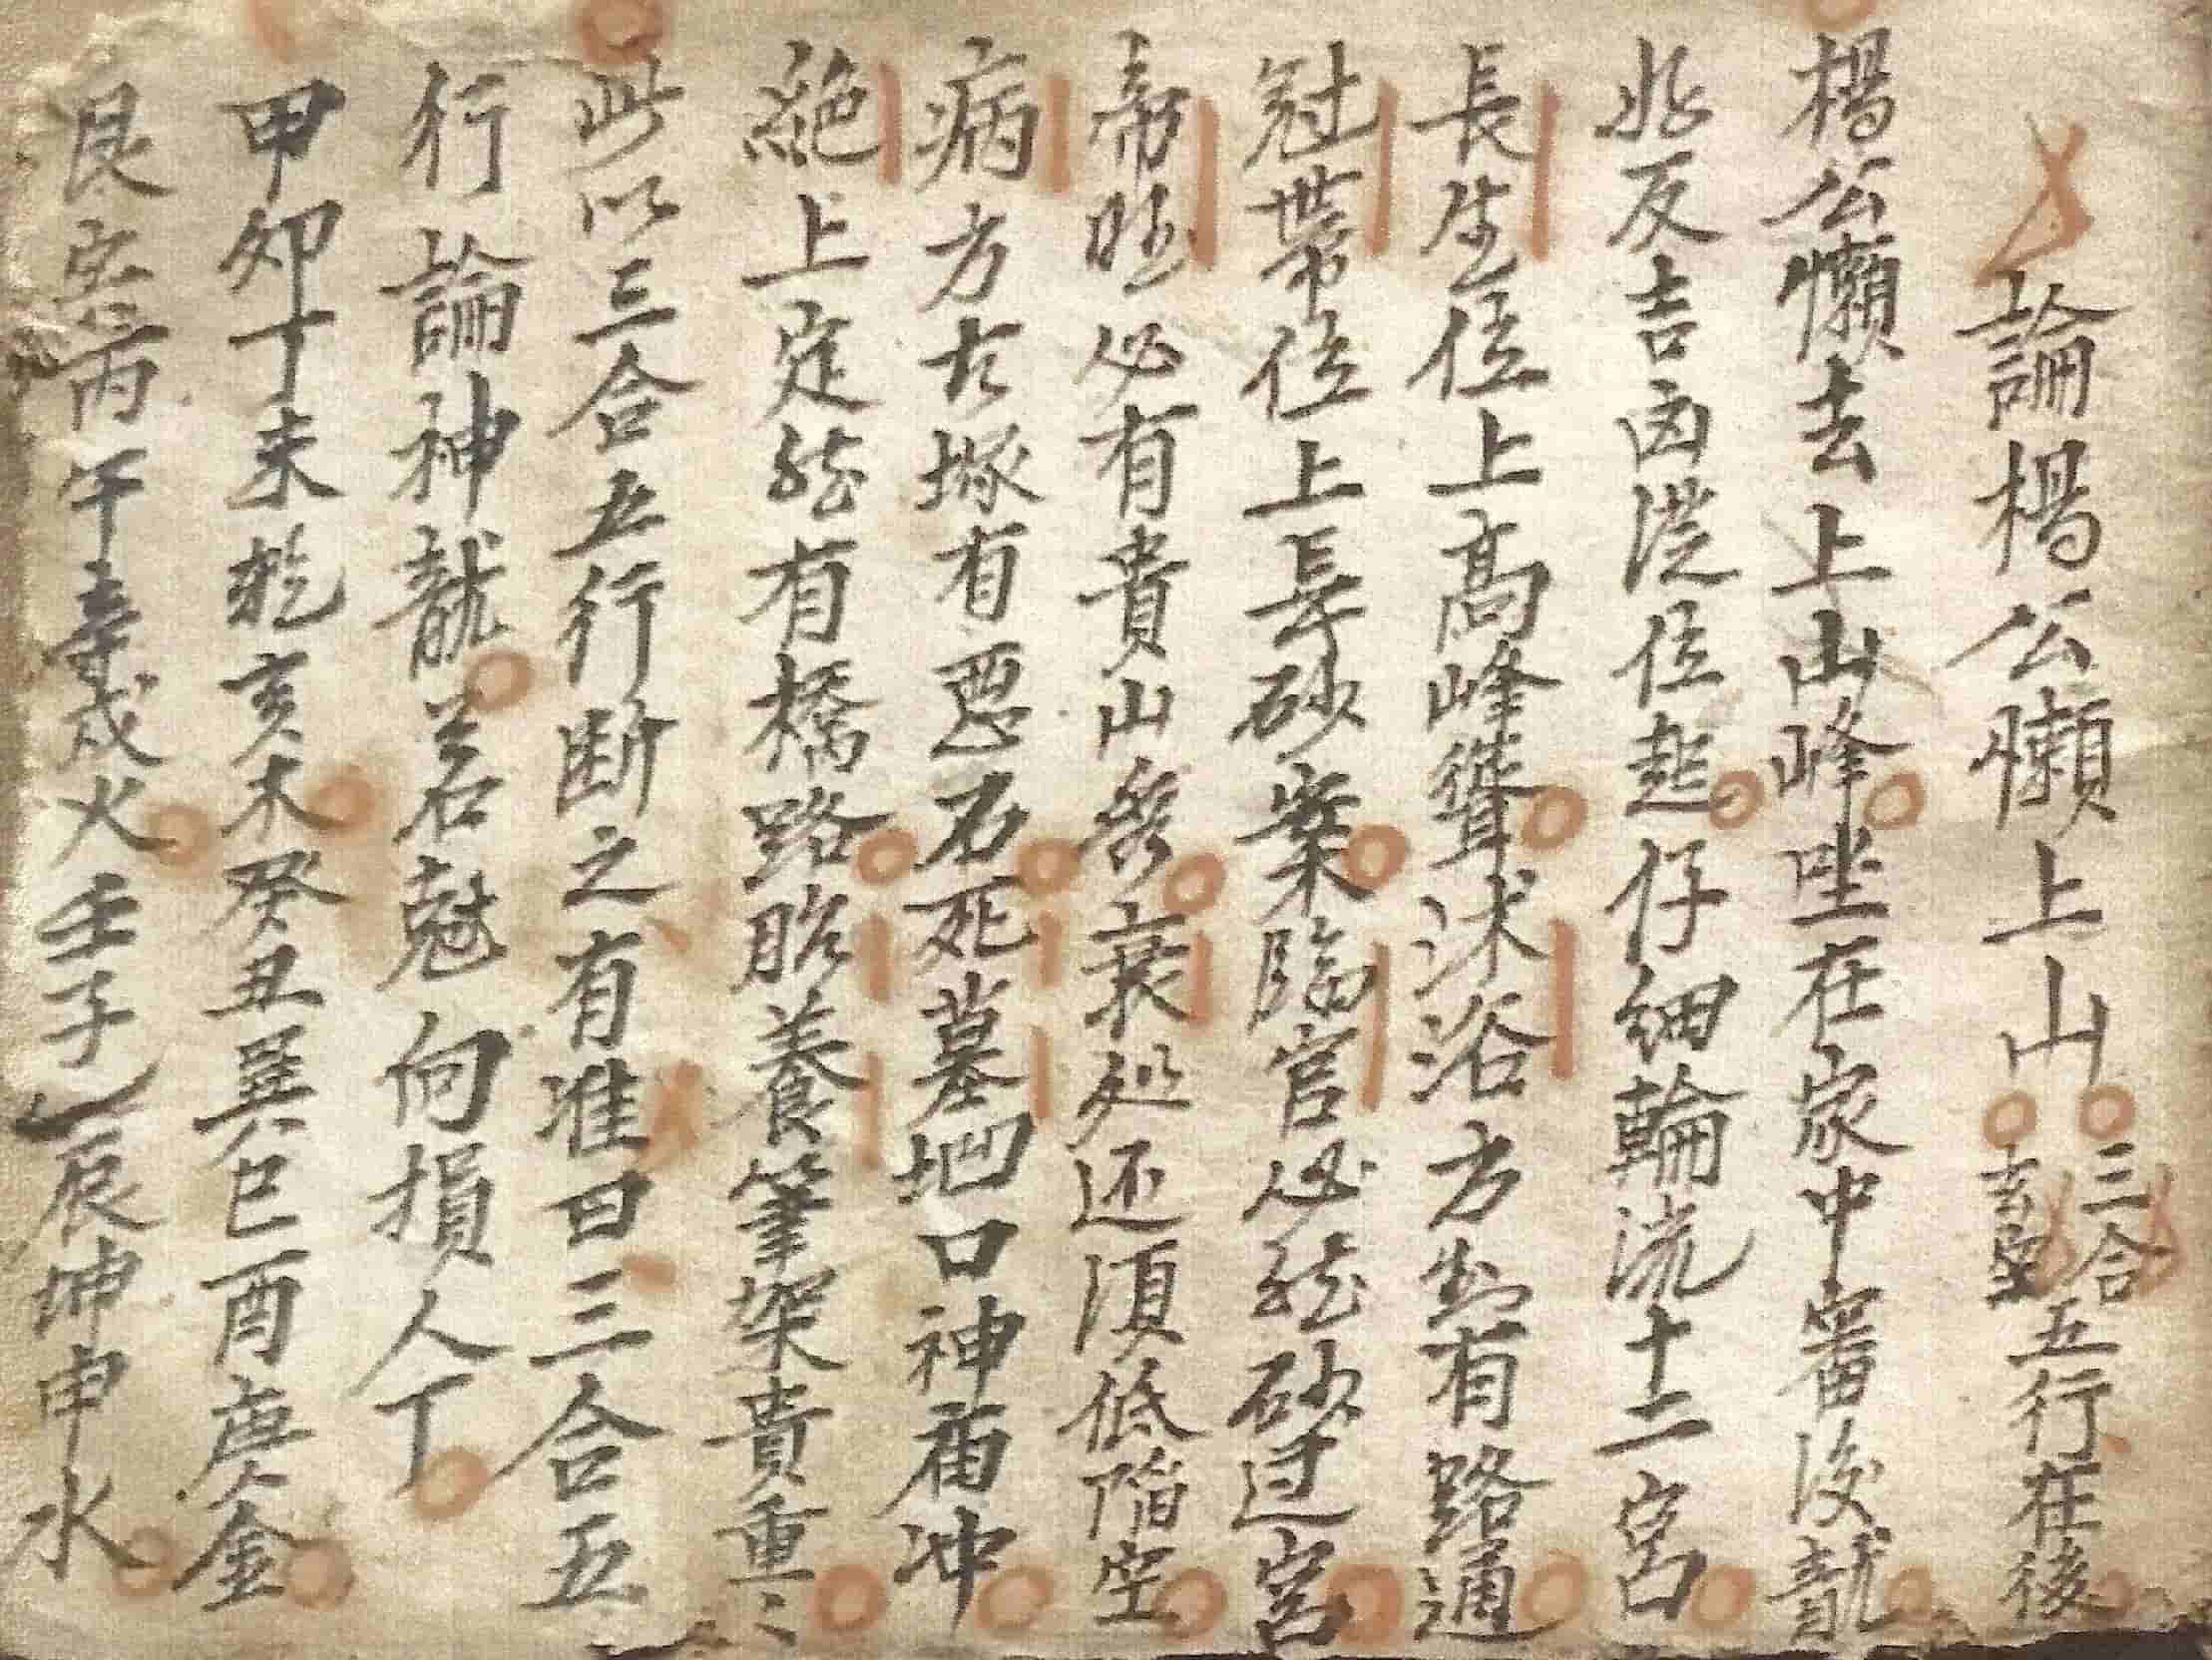 論楊公懶上山三合玄空五行在後
楊公懶去上山峰坐在家中審後龍
此反吉凶從位起仔細輪流十二宮
長生位上高峰聳沭浴方知有路通
冠帶位上長砂案臨官必然砂过宮
帝旺必有貴山秀衰処还須低陷空
病方古塚有惡石死墓凹口神庙冲
絕上定然有橋路胎養筆架貴重〻
此以三合五行断之有准曰三合五
行論神龍若尅向損人丁
甲卯丁未乾亥木癸丑巽巳酉庚金
艮寅丙午辛戌火壬子乙辰坤申水